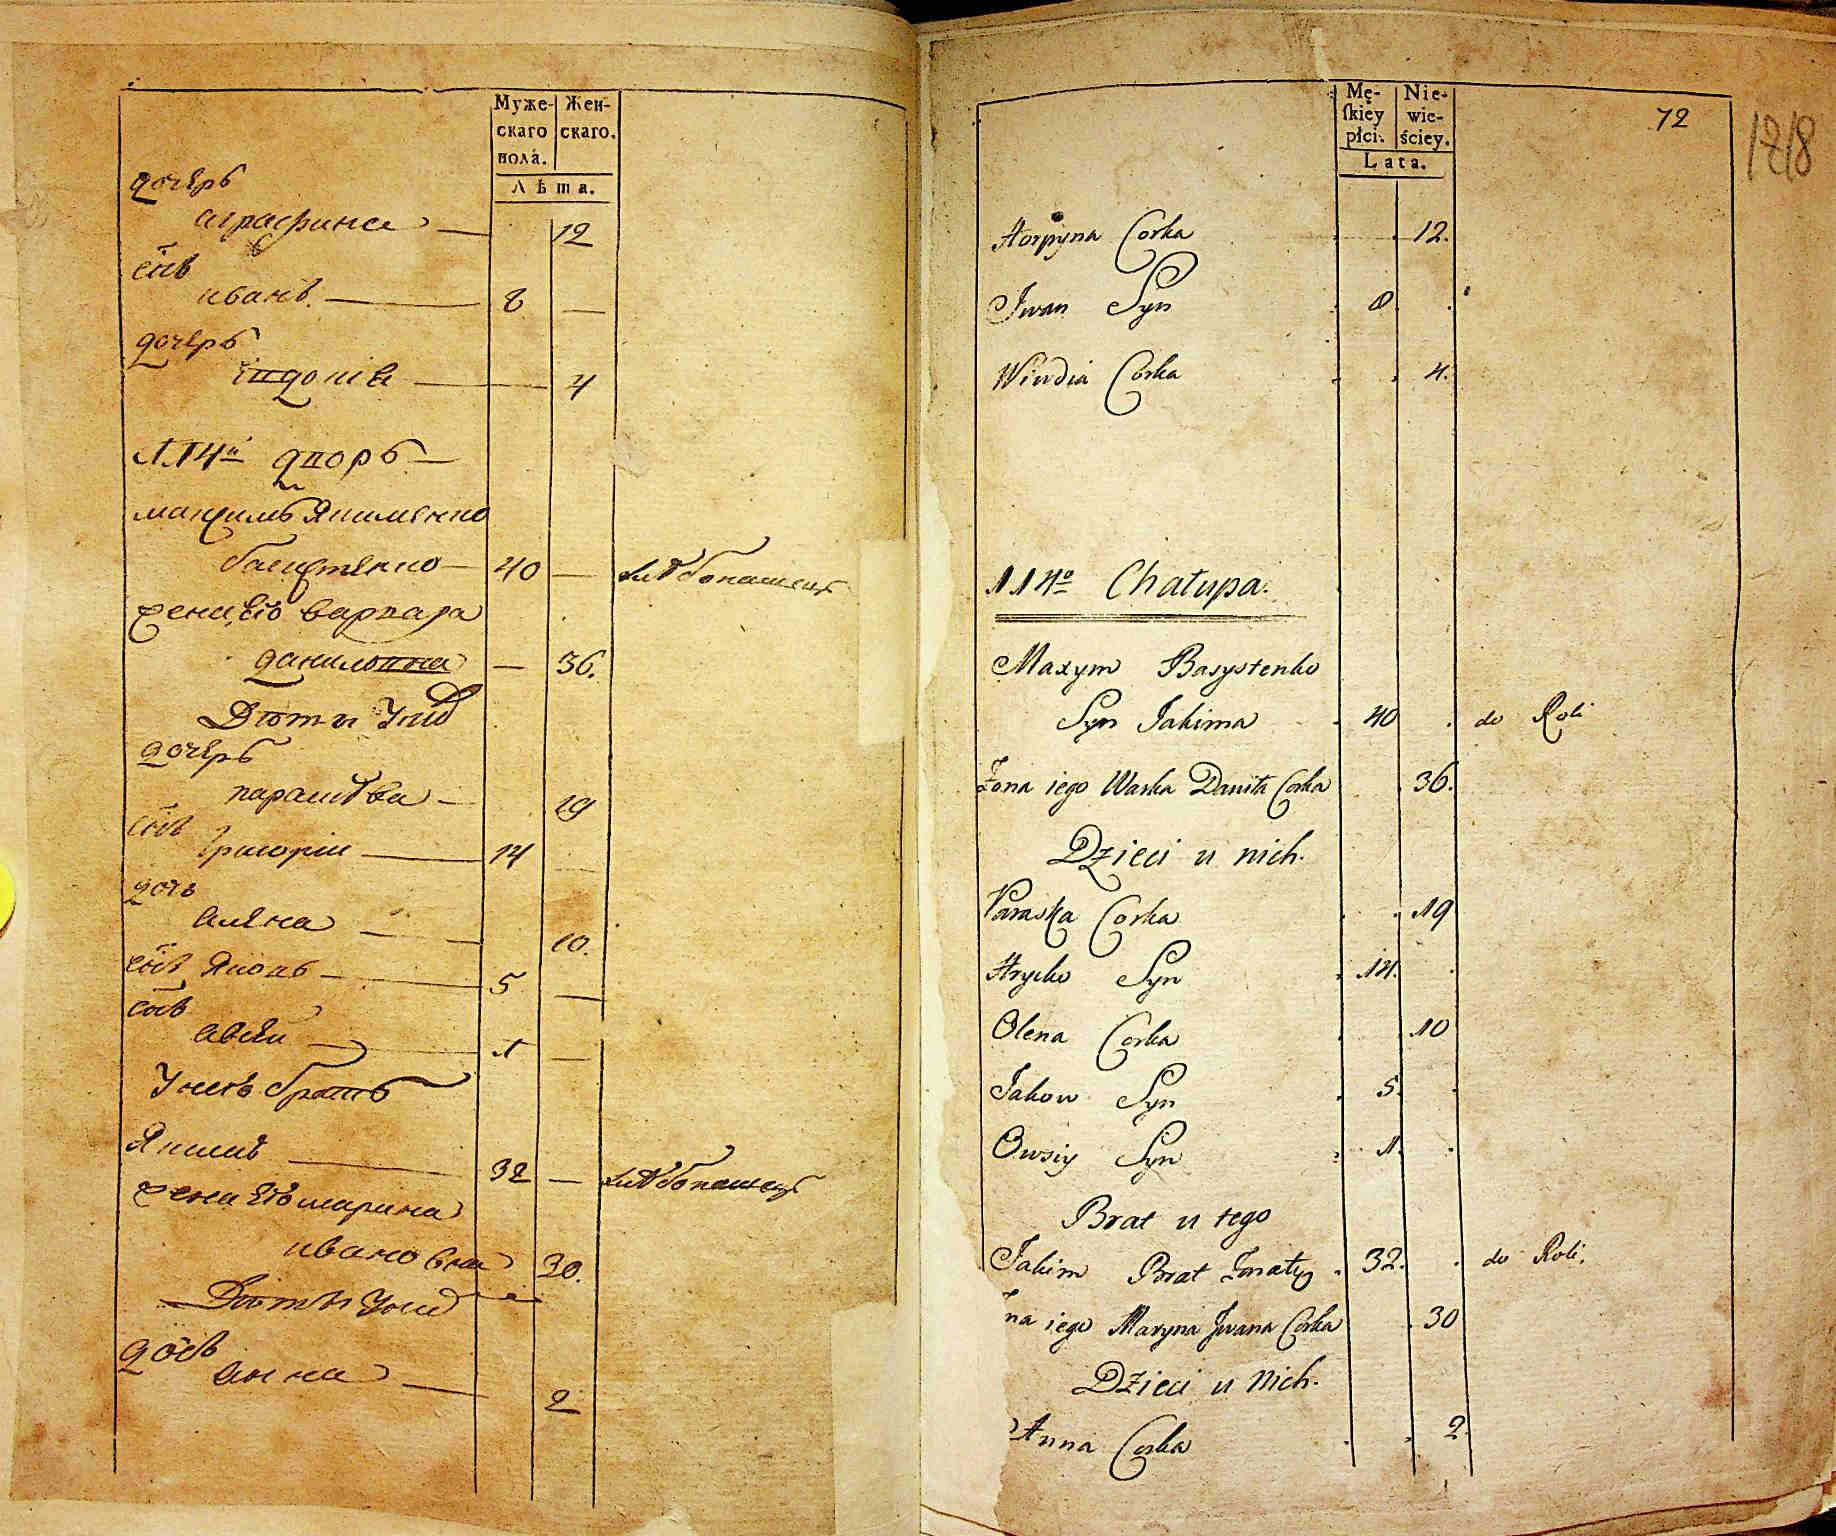 Муже-
скаго
пола.
Жен-
скаго.
Лѣта.
дочерь
аграфина 12
снъ
иванъ 8
дочерь
4
114й дворъ
максимъ Якименко
40 хлѣбопашецъ
жена его варвара
даниловна 36.
Дѣти ихъ
дочерь
параскева 19
снъ
григорiи 14
дочь
алена 10.
снъ Яковъ 5
снъ
авсѣи 1
У него братъ
Якимъ 32 хлѣбопашецъ
жена его марина
ивановна 30.
Дѣти ихъ
дочь
анна 2
Mę-
skiey
płci.
Nie-
wie-
ściey.
Lata.
72
1218
Horpyna Corka 12.
Jwan Syn 8
Wiwdia Corka 4.
114o Chałupa.
Maxym Basystenko
Syn Jakima 40 do Roli
Żona iego Warka Daniła Corka 36.
Dzieci u nich.
Paraska Corka 19
Hrycko Syn 14.
Olena Corka 10
Jakow Syn 5.
Owsiy Syn 1.
Brat u tego
Jakim Brat Żonaty 32. do Roli.
na iego Maryna Jwana Corka 30
Dzieci u Nich.
Anna Corka 2.